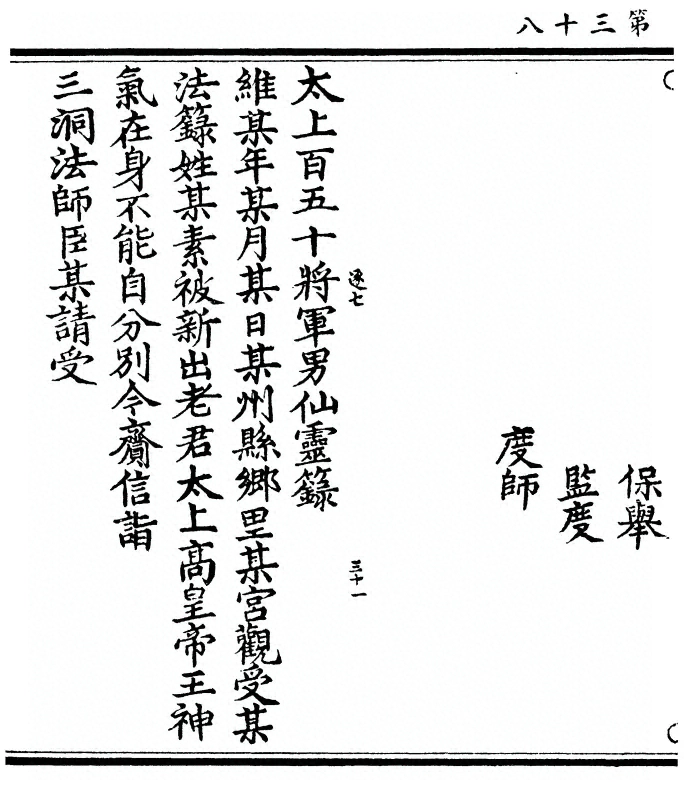 第三十八
保舉
監度
度師
逐七
三十一
太上百五十將軍男仙靈籙
維某年某月某日某州縣鄉里某宮觀受某
法籙姓某素被新出老君太上高皇帝王神
氣在身不能自分別今齎信詣
三洞法師臣某請受